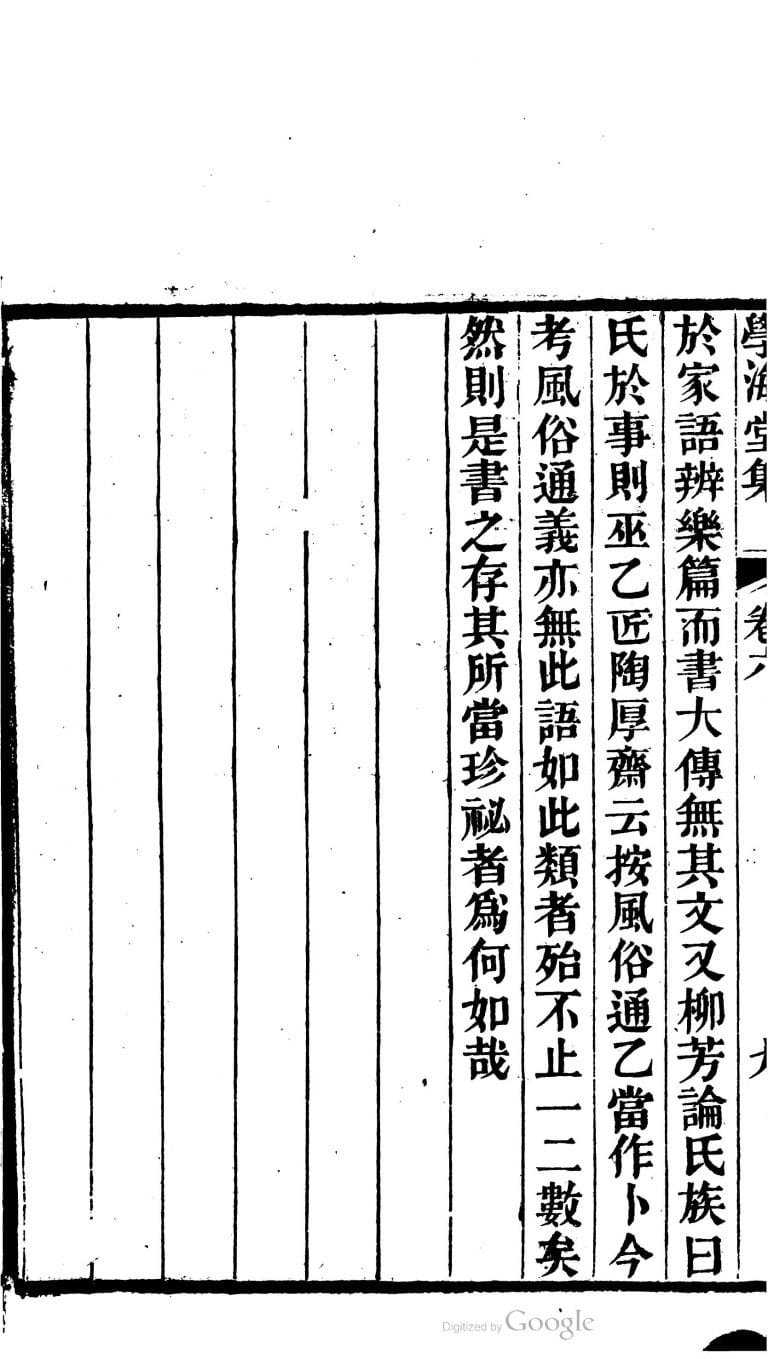 學海堂集 卷六 九
於家語辨樂篇而書大傳無其文又柳芳論氏族曰
氏於事則巫乙匠陶厚齋云按風俗通乙當作卜今
考風俗通義亦無此語如此類者殆不止一二數矣
然則是書之存其所當珍祕者爲何如哉
Digitized by Google